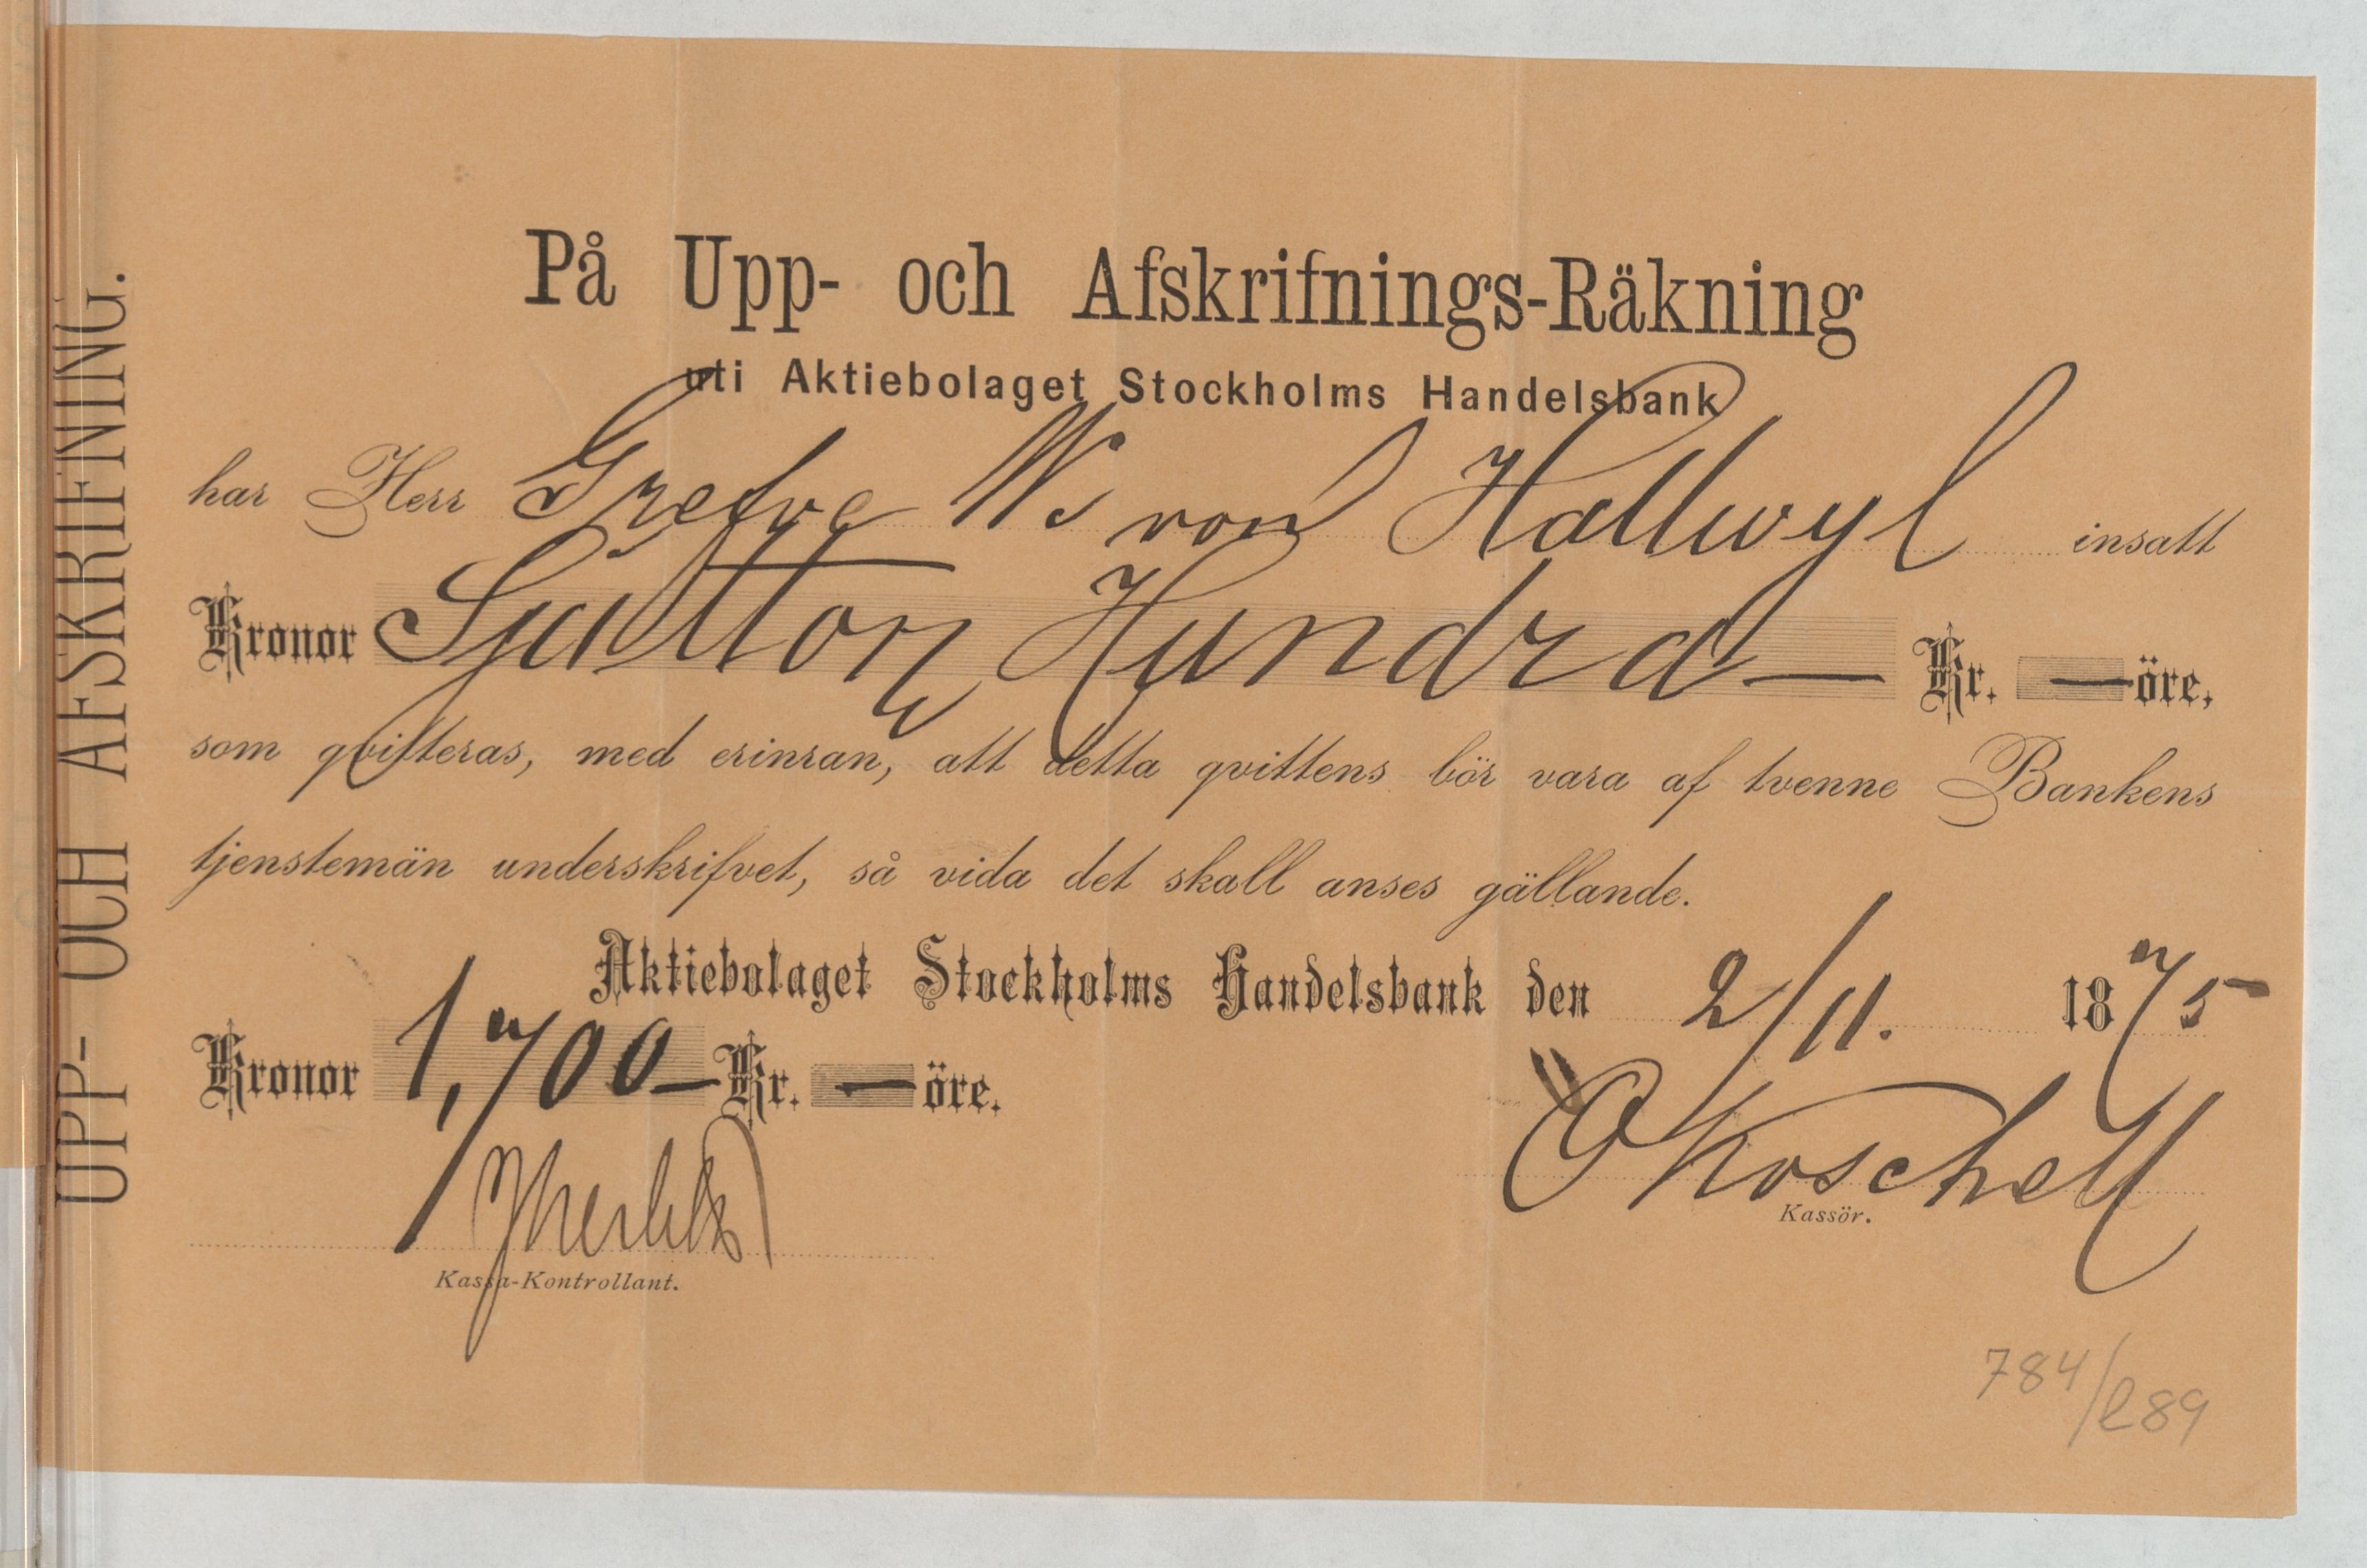 UPP- OCH AFSKRIFNING.
På Upp- och Afskrifnings-Räkning
uti Aktiebolaget Stockholms Handelsbank
har Herr Grefve W. von Hallwyl insatt
Kronor Sjutton Hundra — Kr. — öre,
som qvitteras, med erinran, att detta qvittens bör vara af tvenne Bankens
tjenstemän underskrifvet, så vida det skall anses gällande.
Aktiebolaget Stockholms Handelsbank den 2/11. 1875
Kronor 1,700 — Kr. — öre.
O Koschell
Kassör.
Kassa-Kontrollant.
784/e89